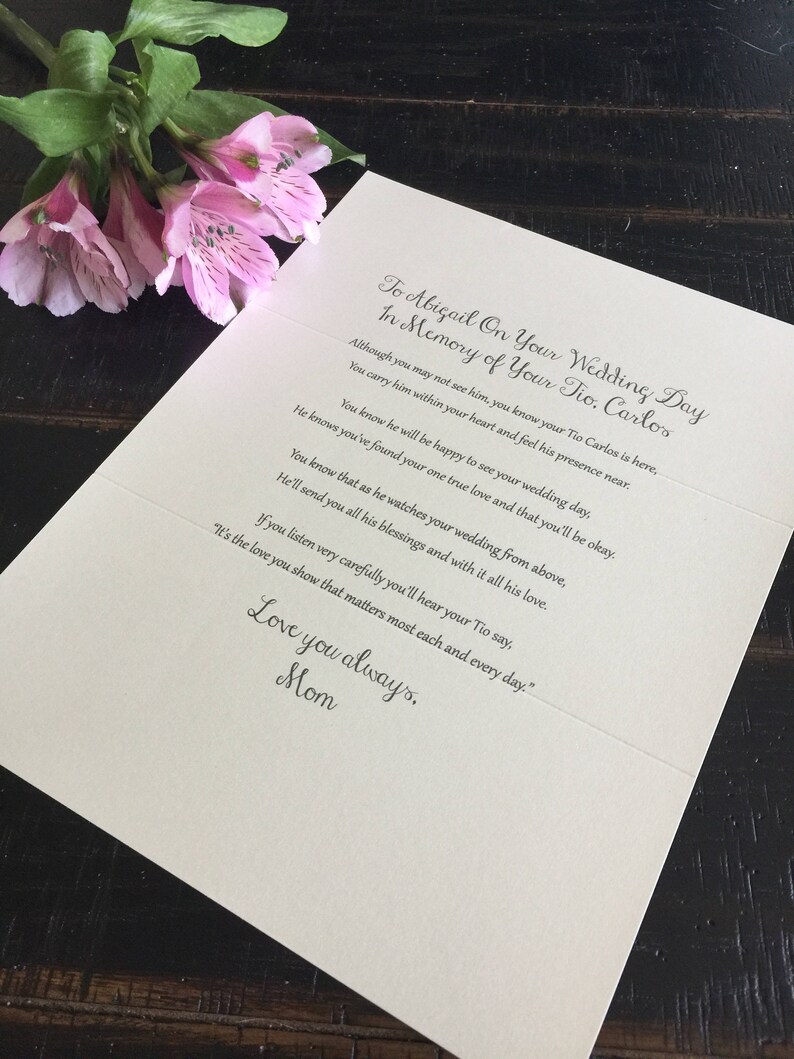 To Abigail On Your Wedding Day
In Memory of Your Tio, Carlos
Although you may not see him, you know your Tio Carlos is here,
You carry him within your heart and feel his presence near.
You know he will be happy to see your wedding day,
He knows you've found your one true love and that you'll be okay.
You know that as he watches your wedding from above,
He'll send you all his blessings and with it all his love.
If you listen very carefully you'll hear your Tio say,
"It's the love you show that matters most each and every day."
Love you always,
Mom